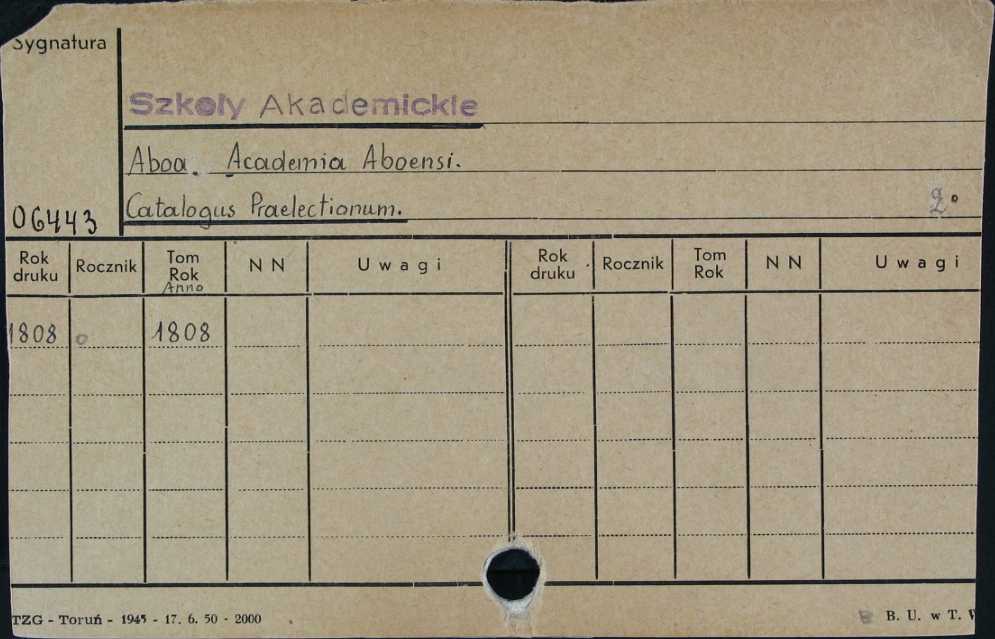 Sygnatura
Szkoły Akademickie
Aboa. Academia Aboensi.
06443 Catalogus Praelectionum. 2°
Rok druku Rocznik Tom Rok Anno N N Uwagi Rok druku Rocznik Tom Rok N N Uwagi
1808 0 1808
TZG - Toruń - 1945 - 17. 6. 50 - 2000 B. U. w T.